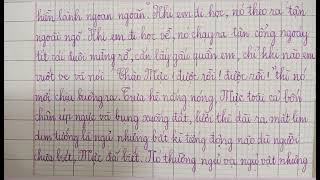 hiền lành ngoan ngoãn. Khi em đi học, nó theo ra tận
ngoài ngõ. Khi em đi học về nó chạy ra tận cổng ngoay
tít cái đuôi mừng rỡ, cắn lấy gấu quần em, chỉ khi nào em
vuốt ve và nói: "Chào Mực! được rồi! được rồi!" thì nó
mới chịu buông ra. Trưa hè nắng nóng, Mực toài cả bốn
chân úp ngực và bụng xuống đất, lưỡi thè dài ra, mắt lim
dim tưởng là ngủ nhưng bất kì tiếng động nào dù người
chưa biết, Mực đã biết. Nó thường ngủ và ngụ vặt nhưng